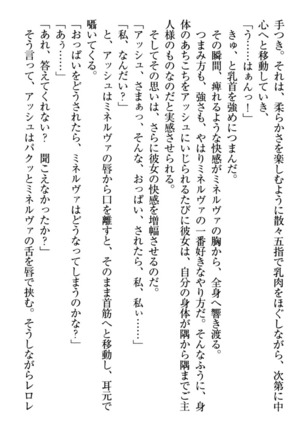 手つき。それは、柔らかさを楽しむように散々五指で乳肉をほぐしながら、次第に中
心へと移動していき、
「う……はぁんっ！」
きゅ、と乳首を強めにつまんだ。
その瞬間、痺れるような快感がミネルヴァの胸から、全身へ響き渡る。
つまみ方も、強さも、やはりミネルヴァの一番好きなやり方だ。そんなふうに、身
体のあちこちをアッシュにいじられるたびに彼女は、自分の身体が隅から隅までご主
人様のものなのだと実感させられる。
そしてその思いは、さらに彼女の快感を増幅させるのだ。
「アッシュ、さまぁっ、そんな、おっぱい、されたら、私、私ぃ……」
「私、なんだい？」
と、アッシュはミネルヴァの唇から口を離すと、そのまま首筋へと移動し、耳元で
囁いてくる。
「おっぱいをどうされたら、ミネルヴァはどうなってしまうのかな？」
「あぅ……」
「あれ、答えてくれない？　聞こえなかったか？」
そう言って、アッシュはパクッとミネルヴァの舌を唇で挟む。そうしながらレロレ